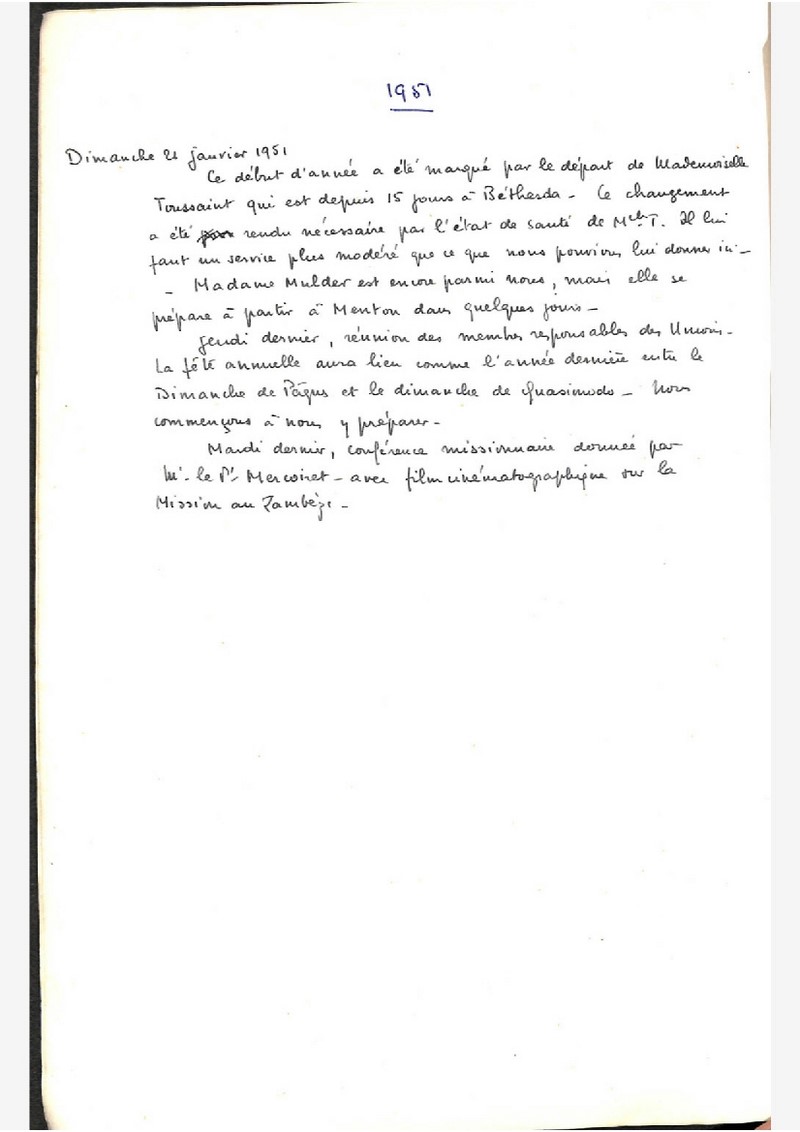 1951
Dimanche 21 janvier 1951
Ce début d'année a été marqué par le départ de Mademoiselle
Toussaint qui est depuis 15 jours à Béthesda - Ce changement
a été rendu nécessaire par l'état de santé de Melle T. Il lui
faut un service plus modéré que ce que nous pouvions lui donner ici -
- Madame Mulder est encore parmi nous, mais elle se
prépare à partir à Menton dans quelques jours -
Jeudi dernier, réunion des membres responsables des Unions -
La fête annuelle aura lieu comme l'année dernière entre le
Dimanche de Pâques et le dimanche de Quasimodo - Nous
commençons à nous y préparer -
Mardi dernier, conférence missionnaire donnée par
Mr. le Pr. Mercoiret - avec film cinématographique sur la
Mission au Zambèze -